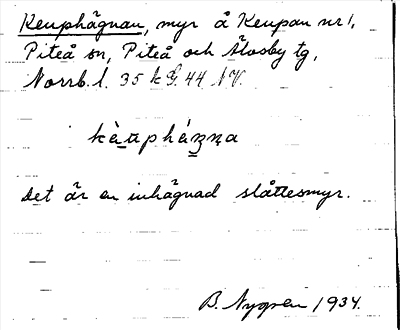 Keuphägnan, myr å Keupan nr 1,
Piteå sn, Piteå och Älvsby tg,
Norrb. l. 35 k G. 44 NV.
Det är en inhägnad slåttesmyr.
B. Nygren 1934.